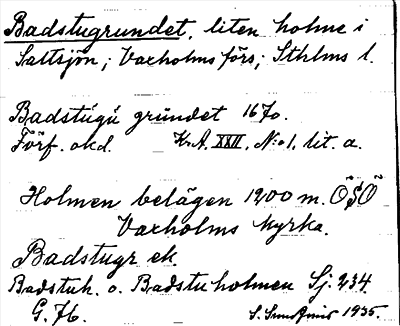 Badstugrundet, liten holme i
Saltsjön; Vaxholms förs; Sthlms l.
Badstúgú grúndet 1670.
Förf. okd. K.A. XXII, N:o 1. lit. a.
Holmen belägen 1200 m. ÖSÖ
Vaxholms kyrka.
Badstugr ek.
Badstuh. o. Badstuholmen Sj. 234
G. 76. 1935.